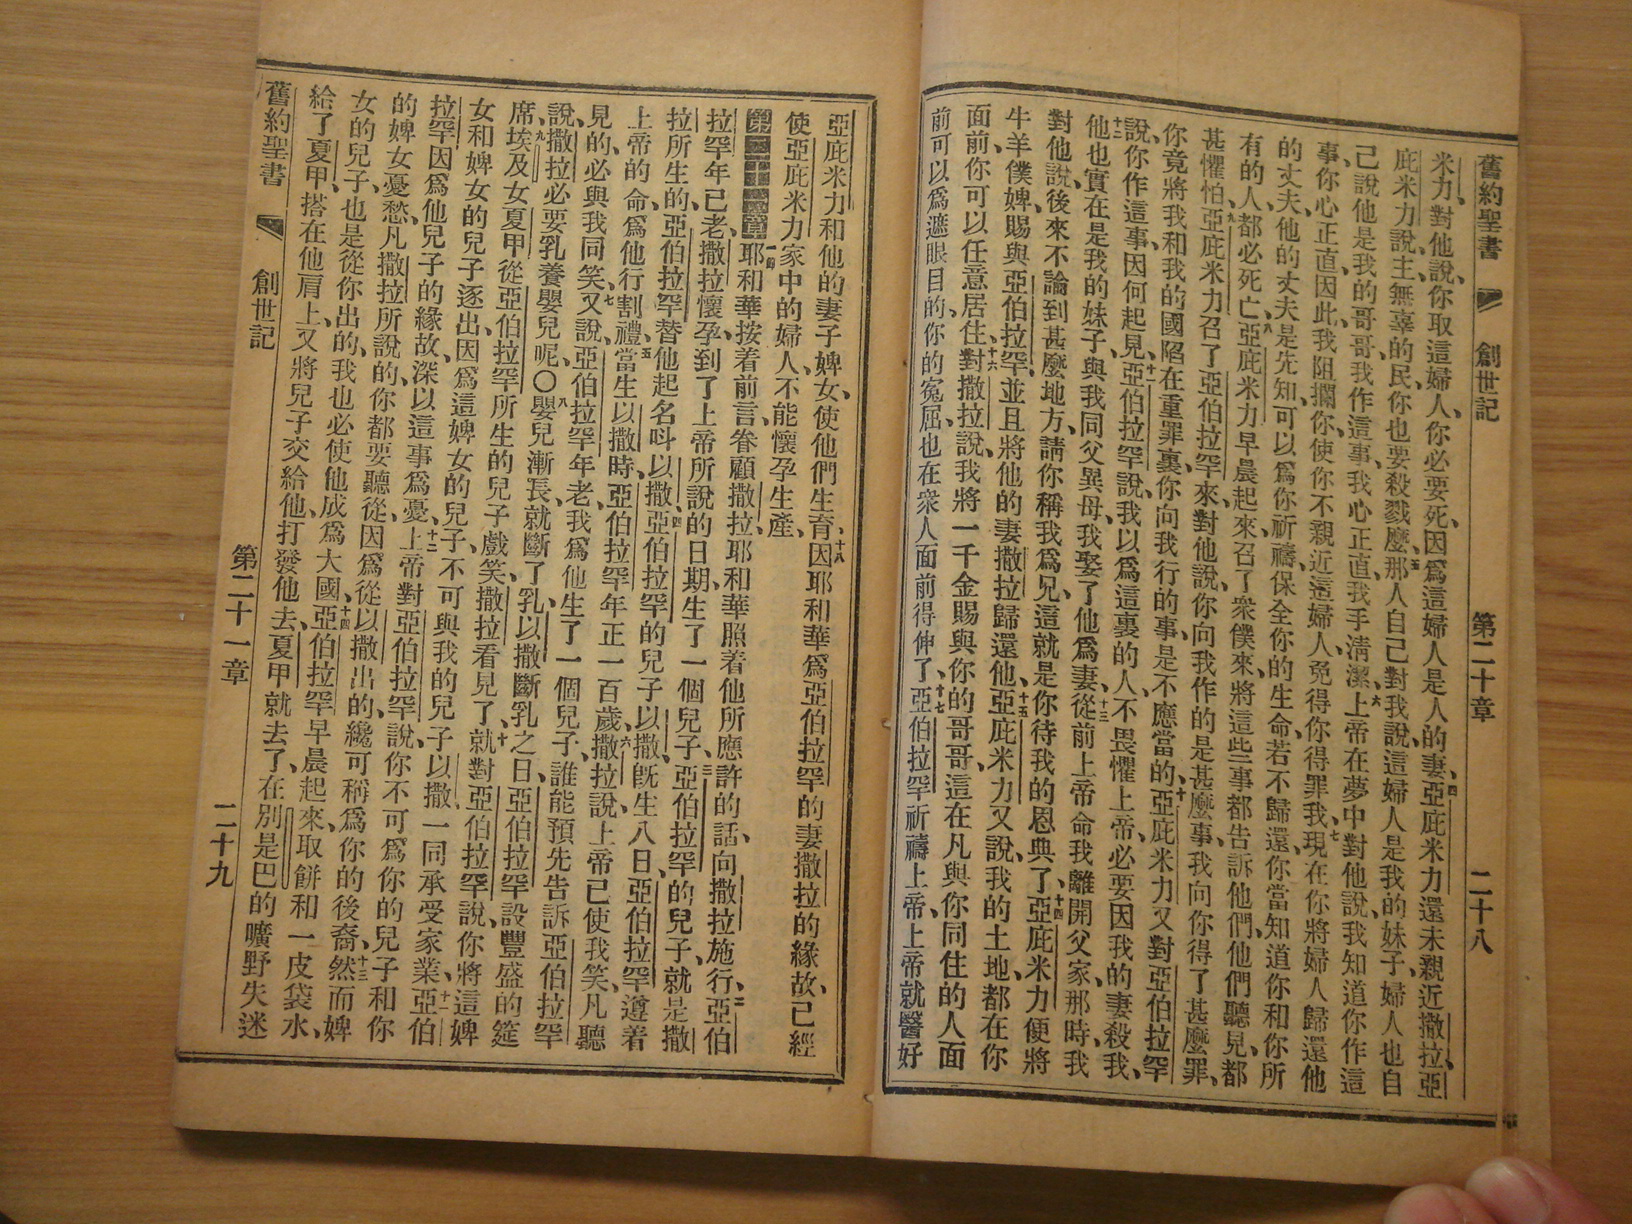 舊約聖書 創世記 第二十章 二十八
米力、對他說、你取這婦人、你必要死、因爲這婦人是人的妻、四亞庇米力還未親近撒拉、亞
庇米力說、主、無辜的民、你也要殺戮麽、五那人自己對我說、這婦人是我的妹子、婦人也自
己說他是我的哥哥、我作這事、我心正直、我手清潔、六上帝在夢中對他說、我知道你作這
事、你心正直、因此我阻攔你、使你不親近這婦人、免得你得罪我、七現在你將婦人歸還他
的丈夫、他的丈夫是先知、可以爲你祈禱、保全你的生命、若不歸還、你當知道你和你所
有的人、都必死亡、八亞庇米力早晨起來、召了衆僕來、將這些事都告訴他們、他們聽見、都
甚懼怕、九亞庇米力召了亞伯拉罕來、對他說、你向我作的是甚麽事、我向你得了甚麽罪、
你竟將我和我的國陷在重罪裏、你向我行的事、是不應當的、十亞庇米力又對亞伯拉罕
說、你作這事、因何起見、十一亞伯拉罕說、我以爲這裏的人、不畏懼上帝、必要因我的妻殺我、
十二他也實在是我的妹子、與我同父異母、我娶了他爲妻、十三從前上帝命我離開父家、那時、我
對他說、後來不論到甚麽地方、請你稱我爲兄、這就是你待我的恩典了、十四亞庇米力便將
牛羊僕婢、賜與亞伯拉罕、並且將他的妻撒拉歸還他、十五亞庇米力又說、我的土地、都在你
面前、你可以任意居住、十六對撒拉說、我將一千金賜與你的哥哥、這在凡與你同住的人面
前可以爲遮眼目的、你的寃屈、也在衆人面前得伸了、十七亞伯拉罕祈禱上帝、上帝就醫好
亞庇米力和他的妻子婢女、使他們生育、十八因耶和華爲亞伯拉罕的妻撒拉的緣故、已經
使亞庇米力家中的婦人、不能懷孕生產、
第二十一章 一節耶和華按着前言、眷顧撒拉、耶和華照着他所應許的話、向撒拉施行、二亞伯
拉罕年已老、撒拉懷孕、到了上帝所說的日期、生了一個兒子、三亞伯拉罕的兒子、就是撒
拉所生的、亞伯拉罕替他起名呌以撒、四亞伯拉罕的兒子以撒、旣生八日、亞伯拉罕遵着
上帝的命、爲他行割禮、五當生以撒時、亞伯拉罕年正一百歲、六撒拉說、上帝已使我笑、凡聽
見的必與我同笑、七又說、亞伯拉罕年老、我爲他生了一個兒子、誰能預先告訴亞伯拉罕
說、撒拉必要乳養嬰兒呢、〇八嬰兒漸長、就斷了乳、以撒斷乳之日、亞伯拉罕設豐盛的筵
席、九埃及女夏甲從亞伯拉罕所生的兒子戲笑、撒拉看見了、十就對亞伯拉罕說、你將這婢
女和婢女的兒子逐出、因爲這婢女的兒子、不可與我的兒子以撒一同承受家業、十一亞伯
拉罕因爲他兒子的緣故、深以這事爲憂、十二上帝對亞伯拉罕說、你不可爲你的兒子和你
的婢女憂愁、凡撒拉所說的、你都要聽從、因爲從以撒出的、纔可稱爲你的後裔、十三然而婢
女的兒子、也是從你出的、我也必使他成爲大國、十四亞伯拉罕早晨起來、取餅和一皮袋水、
給了夏甲、搭在他肩上、又將兒子交給他、打發他去、夏甲就去了、在別是巴的曠野失迷
舊約聖書 創世記 第二十一章 二十九